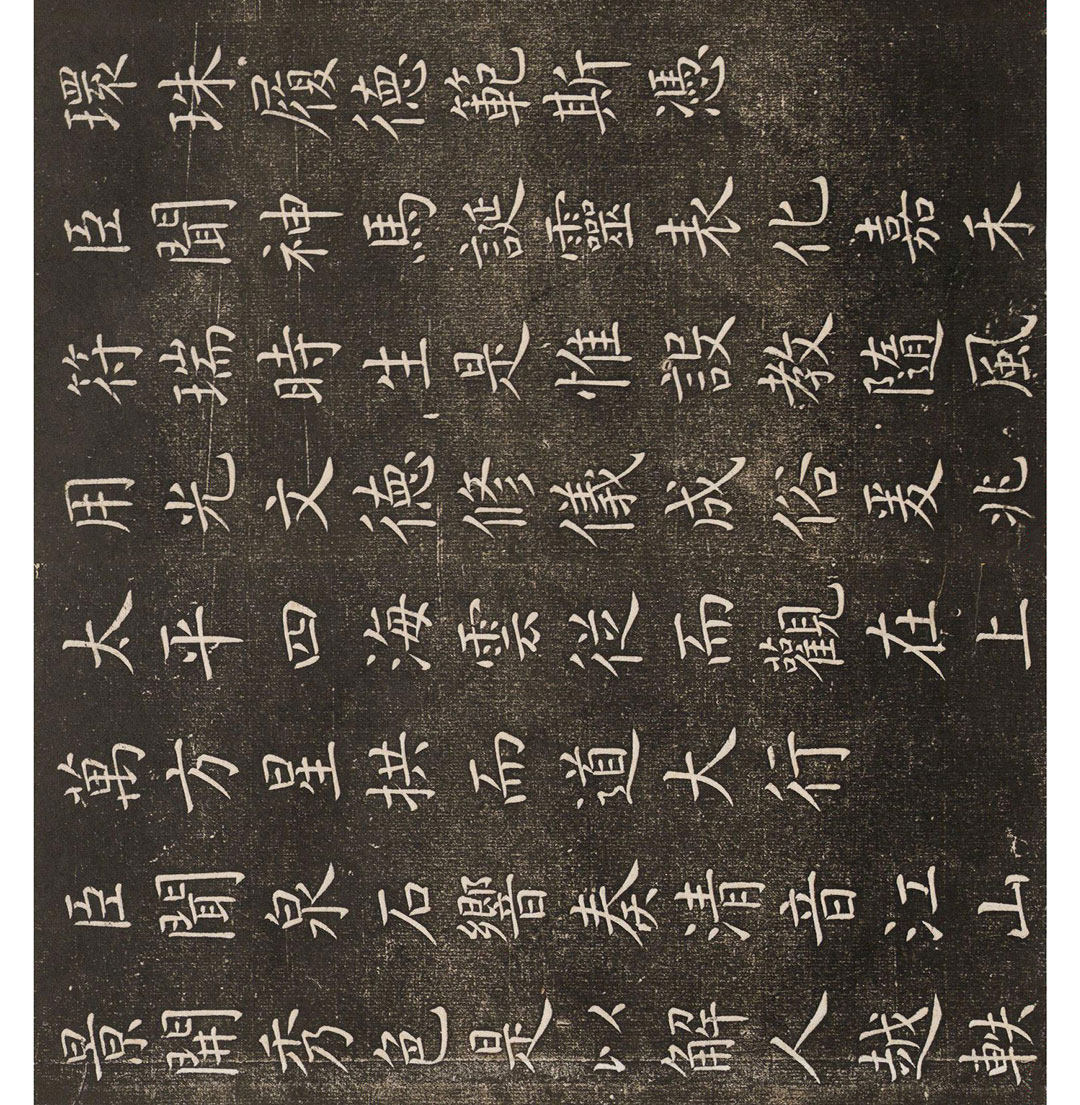 環珠履德範斯馮
臣聞神馬誕靈表化嘉禾
符瑞時生是惟設教隨風
用光文德修儀成俗美兆
太平四海雲從而觀在上
萬方星拱而道大行
臣聞泉石響奏清音江山
景開秀色是以解人越軼